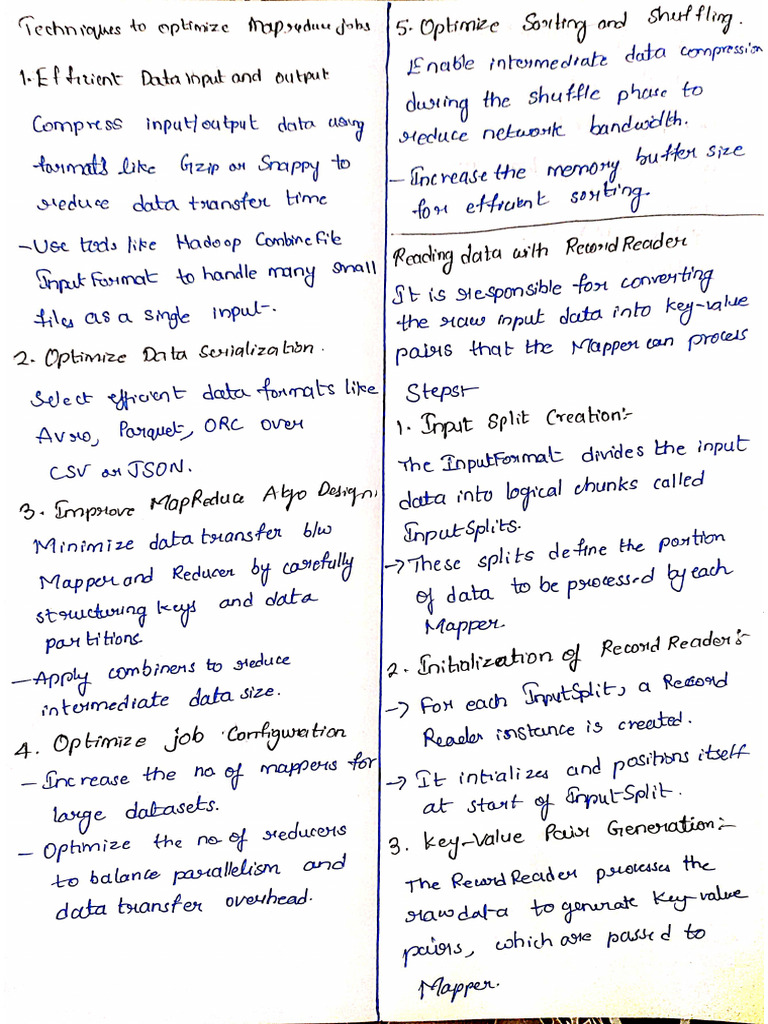 Techniques to optimize Mapreduce jobs
1. Efficient Data input and output
Compress input/output data using
formats like Gzip or Snappy to
reduce data transfer time
- Use tools like Hadoop Combine file
Input Format to handle many small
files as a single input.
2. Optimize Data Serialization.
Select efficient data formats like
Avro, Parquet, ORC over
CSV or JSON.
3. Improve MapReduce Algo Design
Minimize data transfer b/w
Mapper and Reducer by carefully
structuring keys and data
partitions
- Apply combiners to reduce
intermediate data size.
4. Optimize job Configuration
- Increase the no of mappers for
large datasets.
- Optimize the no of reducers
to balance parallelism and
data transfer overhead.
5. Optimize Sorting and Shuffling.
Enable intermediate data compression
during the shuffle phase to
reduce network bandwidth.
- Increase the memory buffer size
for efficient sorting.
Reading data with Record Reader
It is responsible for converting
the raw input data into key-value
pairs that the Mapper can process
Steps:-
1. Input Split Creation:-
The InputFormat divides the input
data into logical chunks called
InputSplits.
→ These splits define the portion
of data to be processed by each
Mapper.
2. Initialization of Record Reader:-
→ For each InputSplit, a Record
Reader instance is created.
→ It intializes and positions itself
at start of InputSplit.
3. Key-Value Pair Generation:-
The RecordReader processes the
raw data to generate key-value
pairs, which are passed to
Mapper.